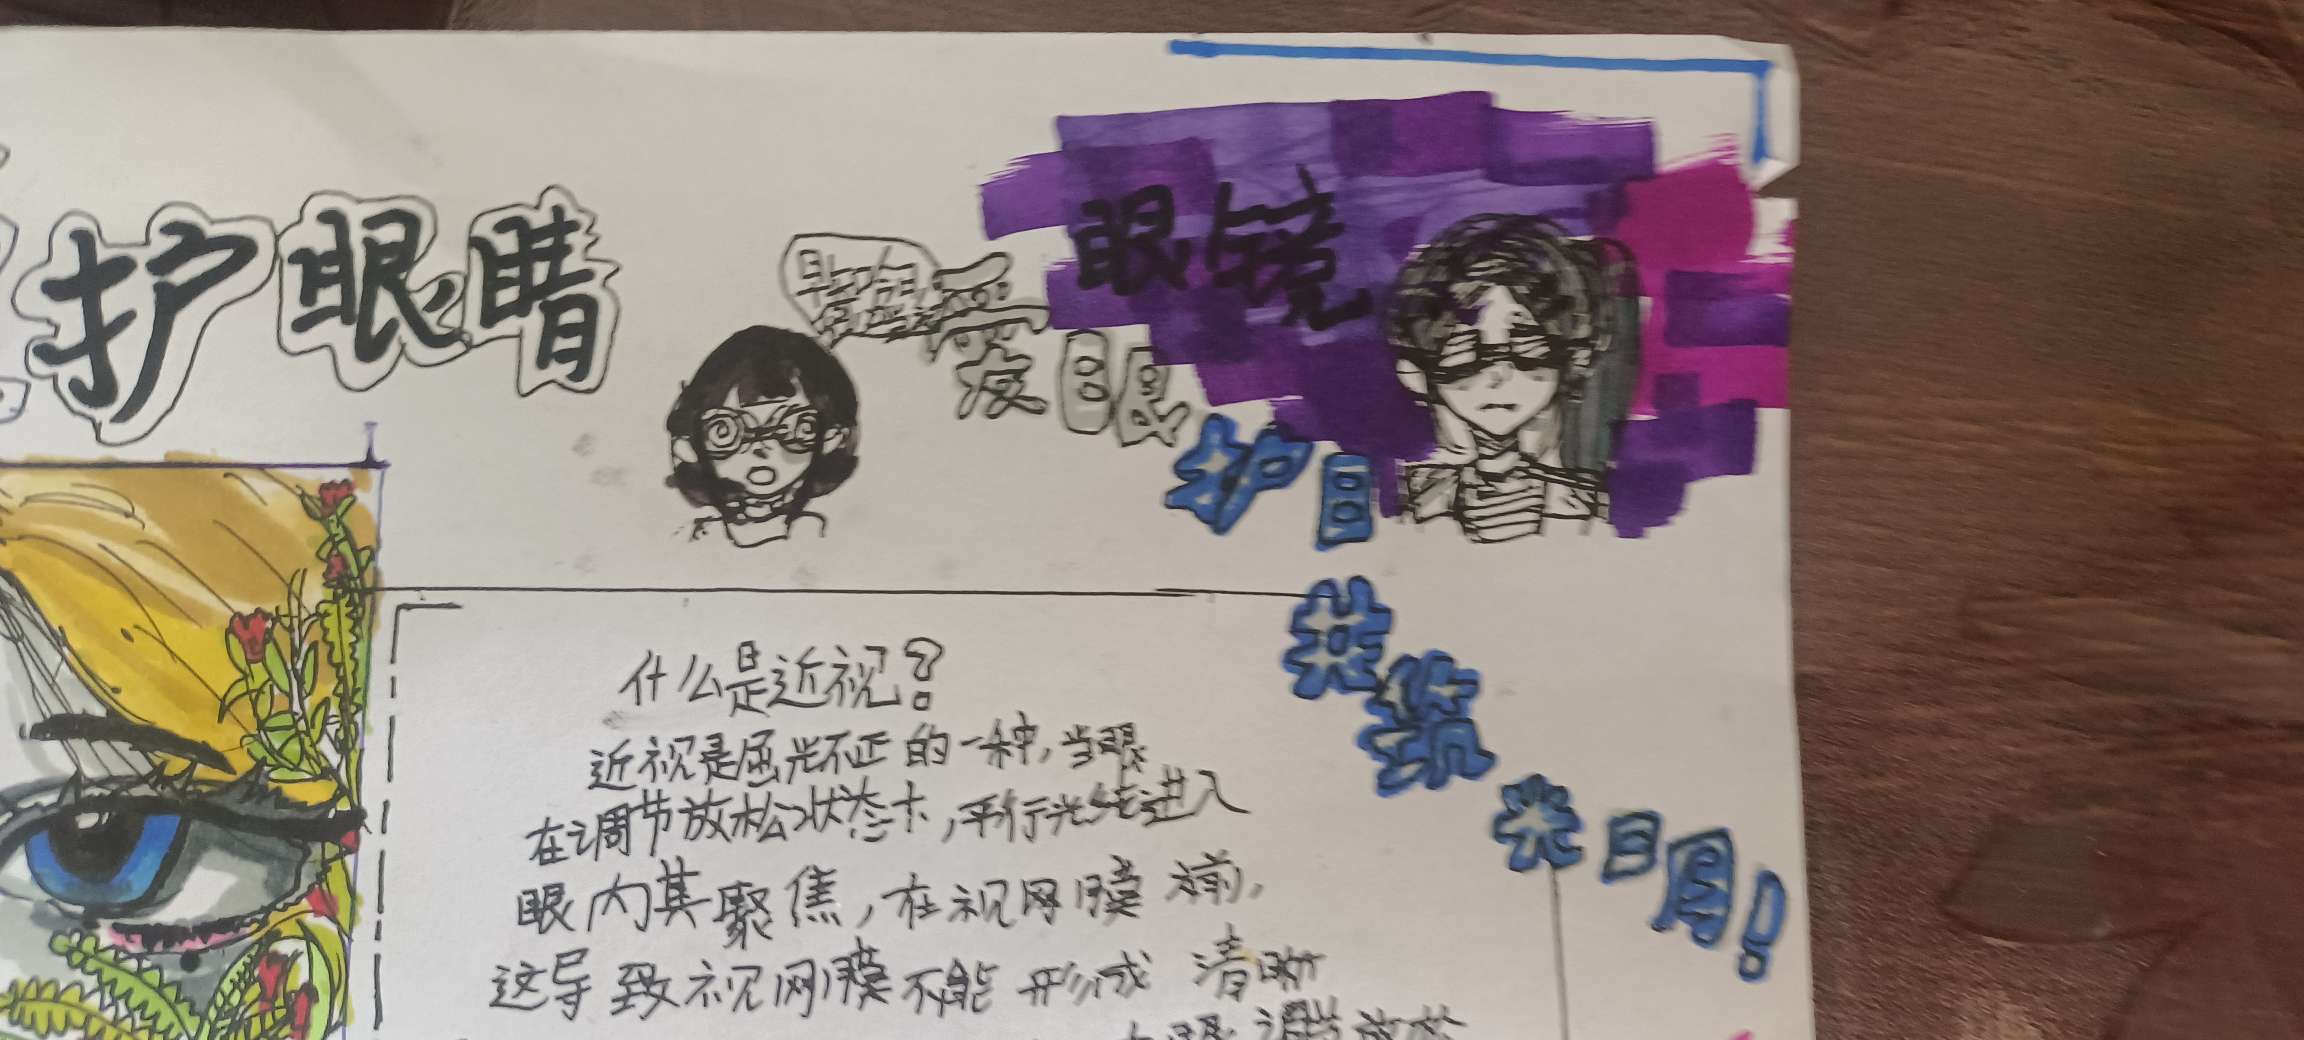 护眼睛
眼镜
爱眼
护目
共筑
光明!
什么是近视?
近视是屈光不正的一种,当眼
在调节放松状态下,平行光线进入
眼内其聚焦,在视网膜前,
这导致视网膜不能形成清晰
调节放松